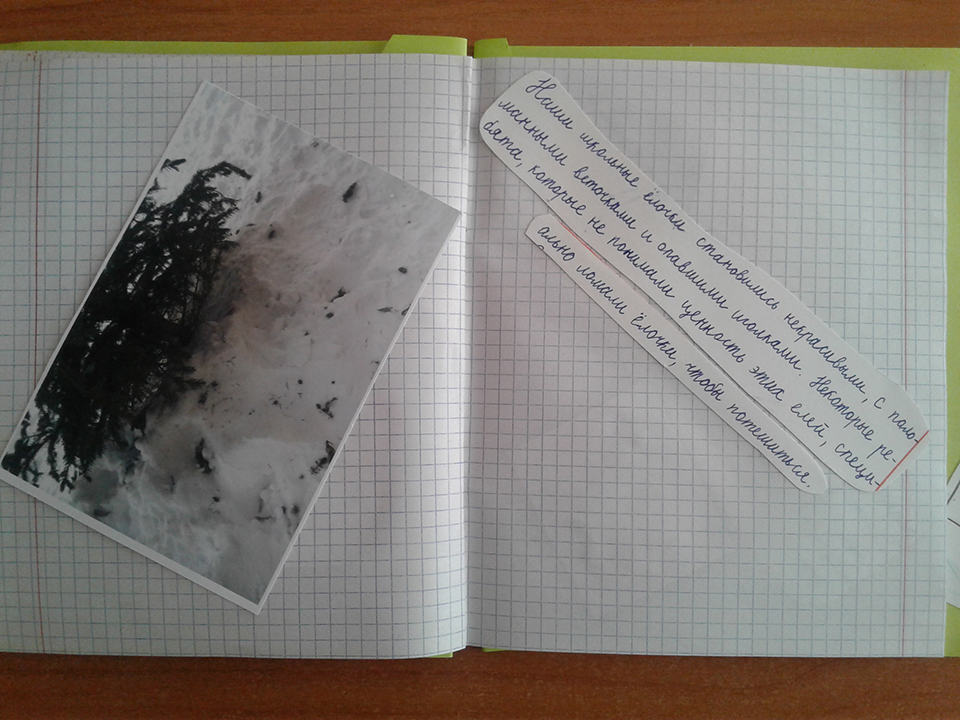 Наши школьные ёлочки становились некрасивыми, с поло-
манными веточками и опавшими иголками. Некоторые ре-
бята, которые не понимали ценность этих елей, специ-
ально ломали ёлочки, чтобы потешиться.